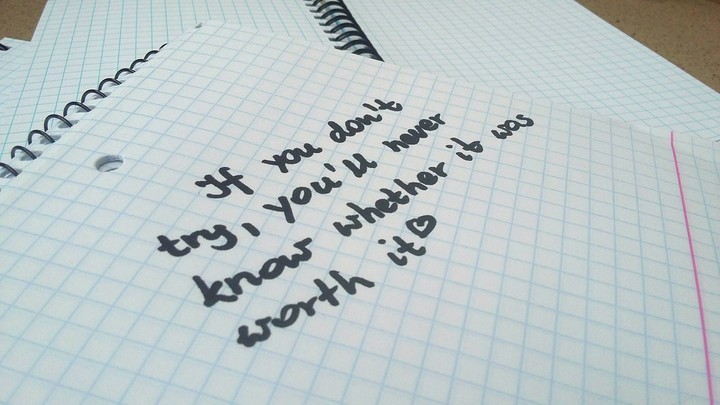 If you don't
try, you'll never
know whether it was
worth it♡